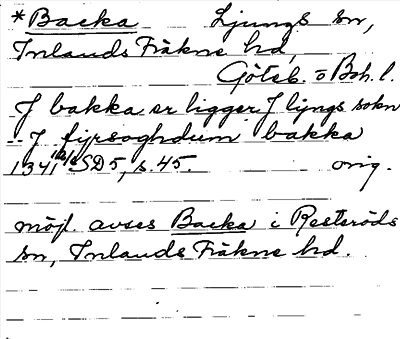 *Backa Ljungs sn,
Inlands Fräkne hd,
Göteb. o Boh. l.
J bakka er ligger J liungs sokn
.. J firsoghdum bakka
1341 12/5 SD 5, s. 45. orig.
möjl. avses Backa i Resteröds
sn, Inlands Fräkne hd.